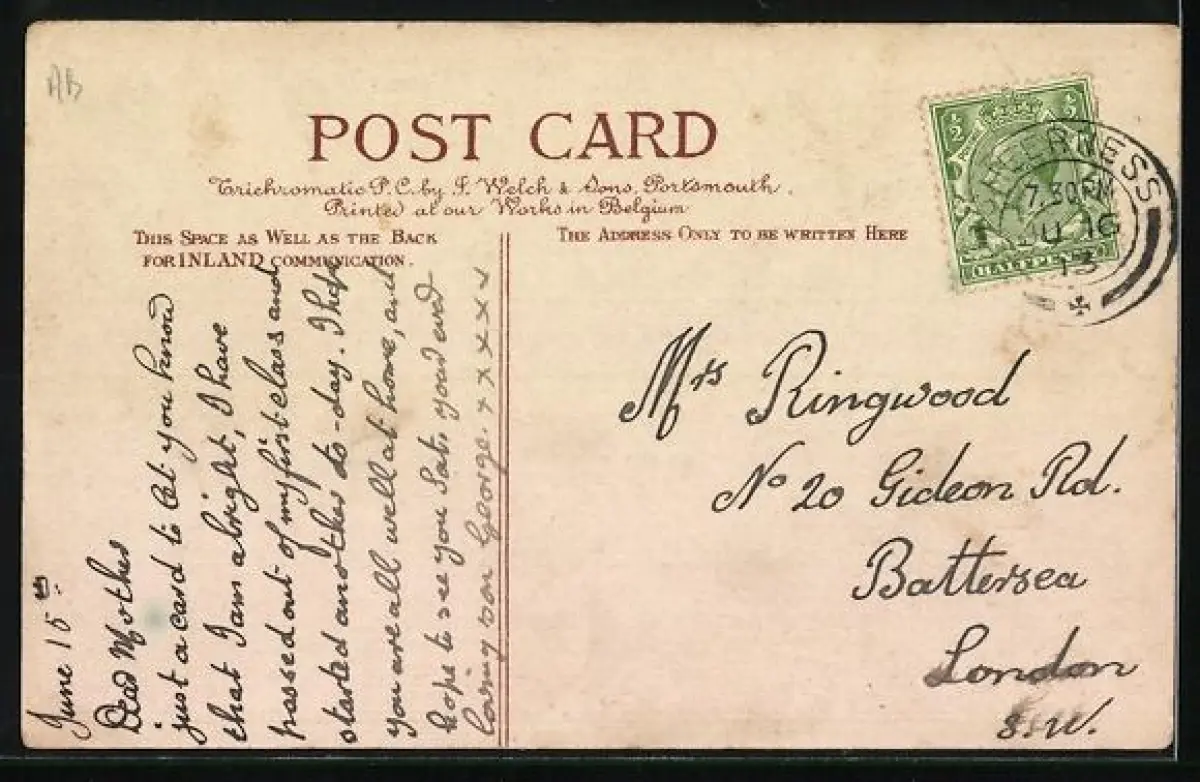 AB
POST CARD
Trichromatic P.C. by F. Welch & Sons, Portsmouth.
Printed at our Works in Belgium
THIS SPACE AS WELL AS THE BACK
FOR INLAND COMMUNICATION.
THE ADDRESS ONLY TO BE WRITTEN HERE
½ ½
HALFPENNY
SHEERNESS
7.30 PM
JU 16
13
June 15th
Dear Mother
just a card to let you know
that I am alright, I have
passed out of my first class and
started another to-day. I hope
you are all well at home, and
hope to see you Sat. your ever
loving son George. x x x x x
Mrs Ringwood
No 20 Gideon Rd.
Battersea
London
S.W.